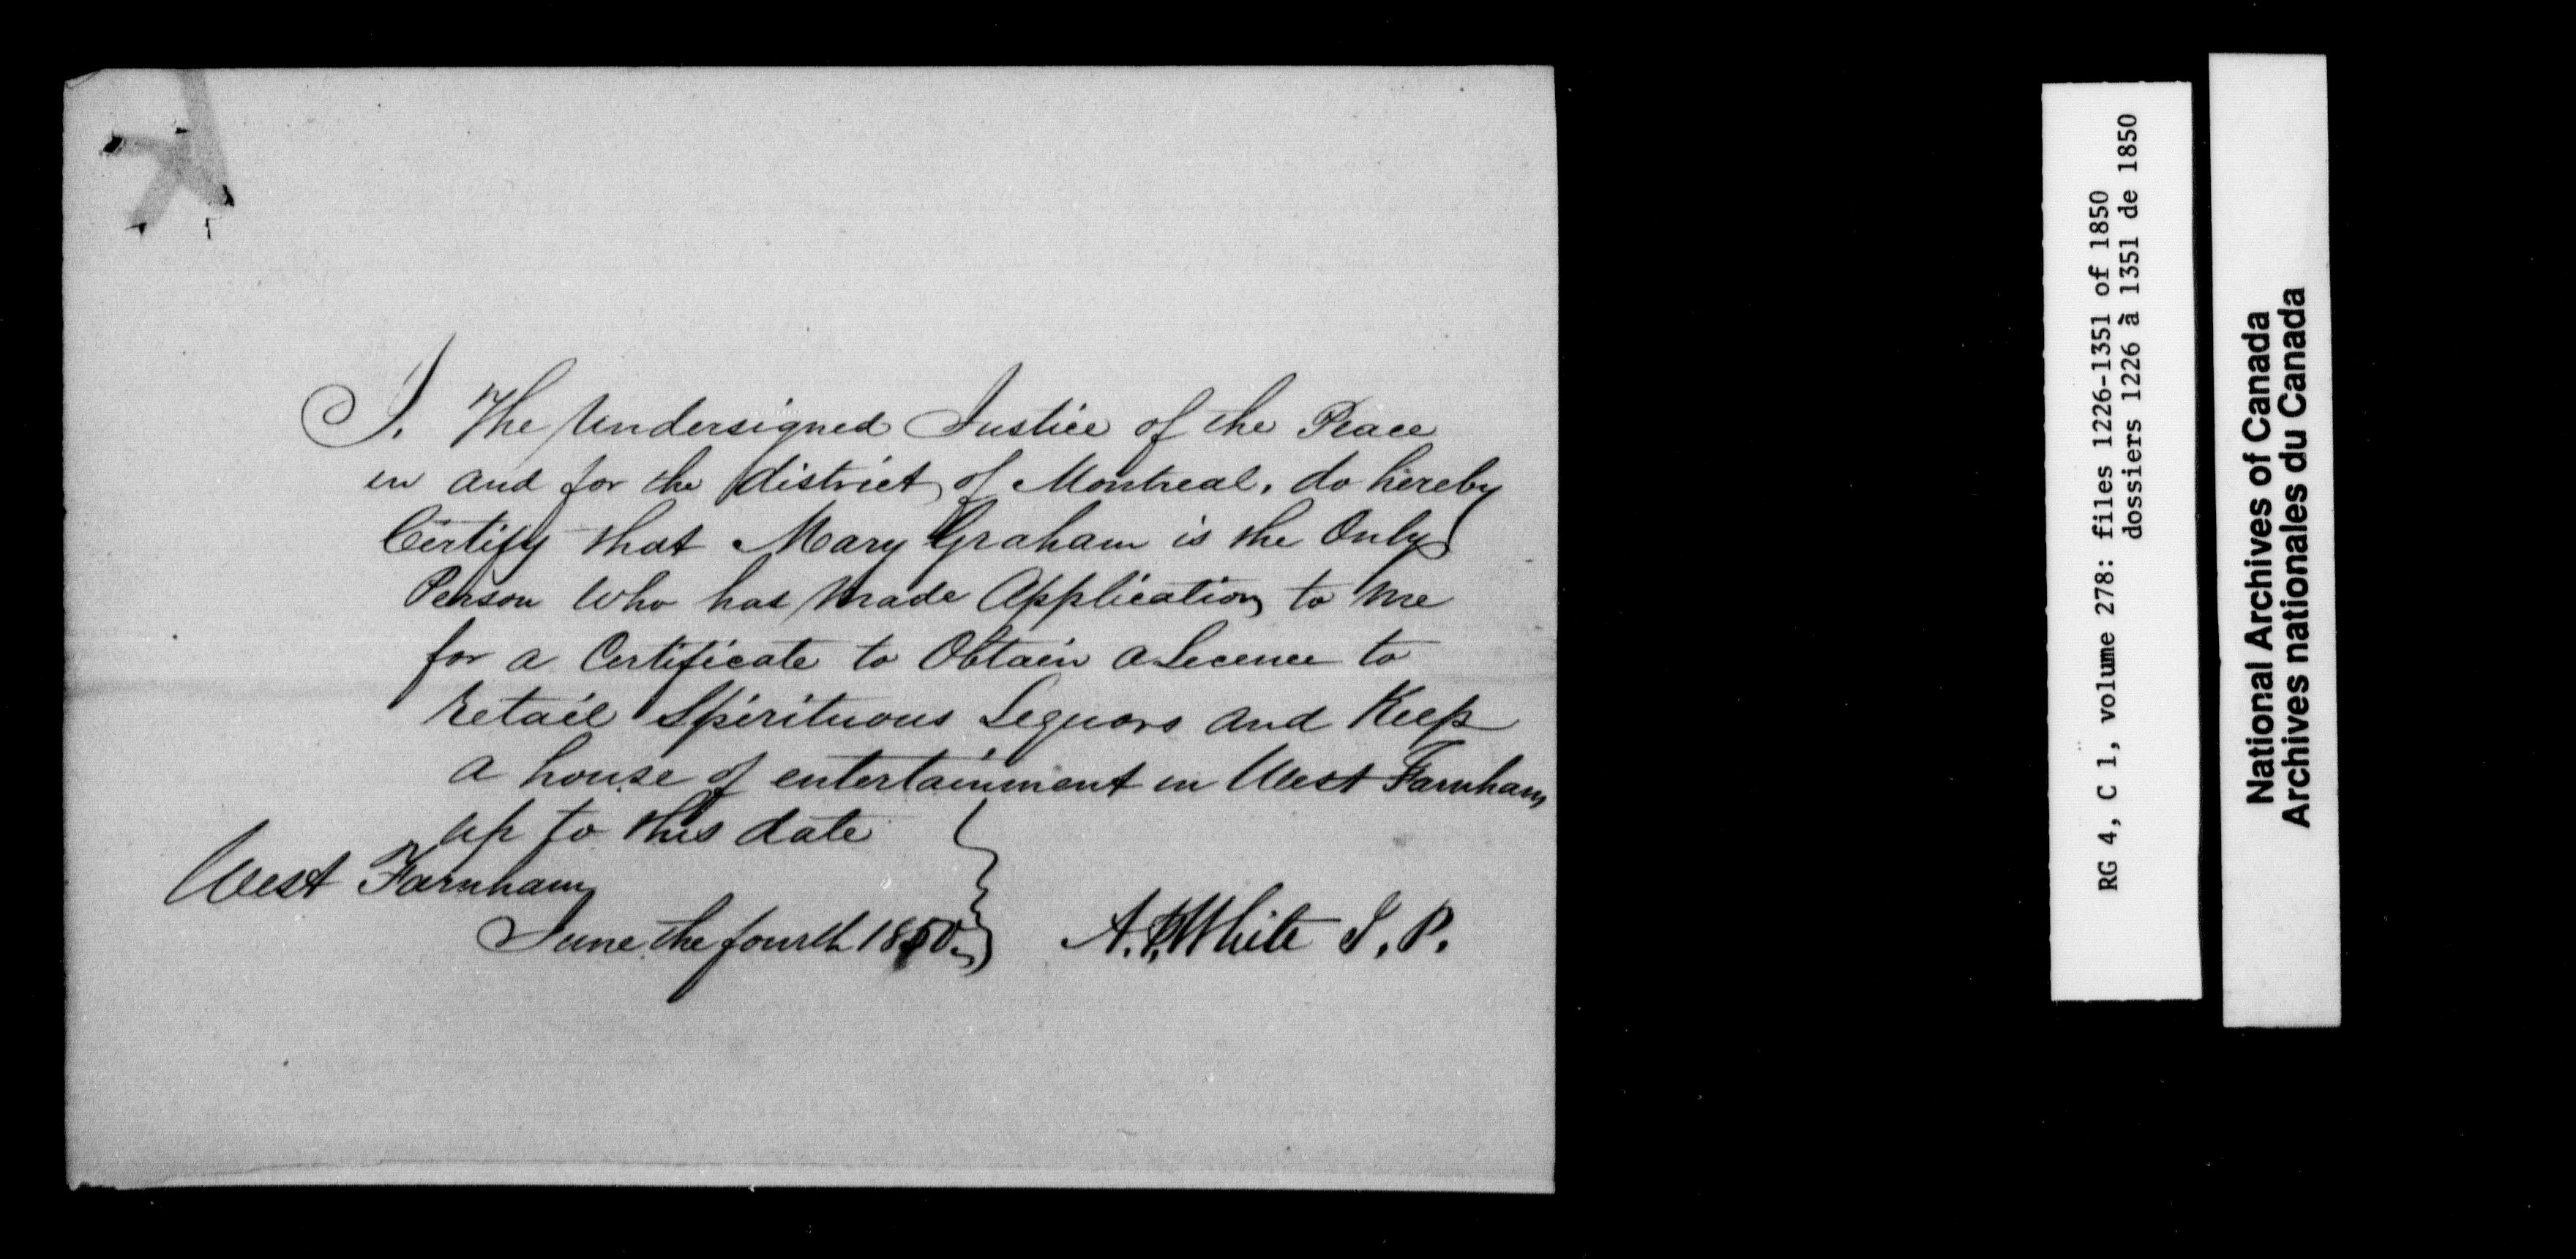 I. The Undersigned Justice of the Peace
in and for the district of Montreal, do hereby
Certify that Mary Graham is the Only
Person Who has Made Application to Me
for a Certificate to Obtain a Licence to
retail Spirituous Liquors and Keep
a house of entertainment in West Farnham
up to this date
West Farnham
June the fourth 1850.
A. P. White J. P.
RG 4, C 1, volume 278: files 1226-1351 of 1850
dossiers 1226 à 1351 de 1850
National Archives of Canada
Archives nationales du Canada